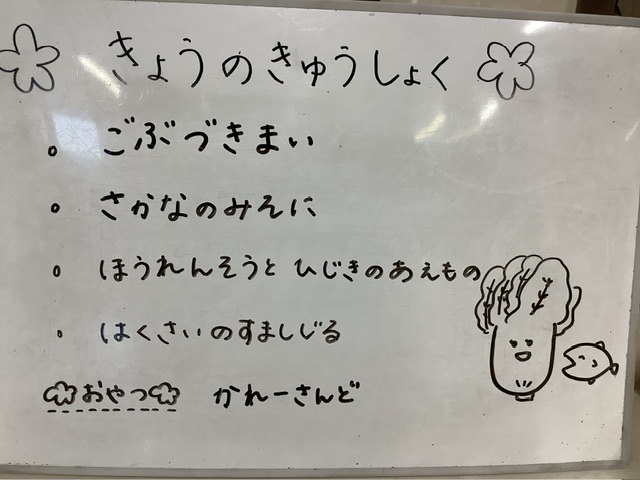 きょうのきゅうしょく
。ごぶづきまい
。さかなのみそに
。ほうれんそうと ひじきのあえもの
。はくさいのすましじる
おやつ かれーさんど